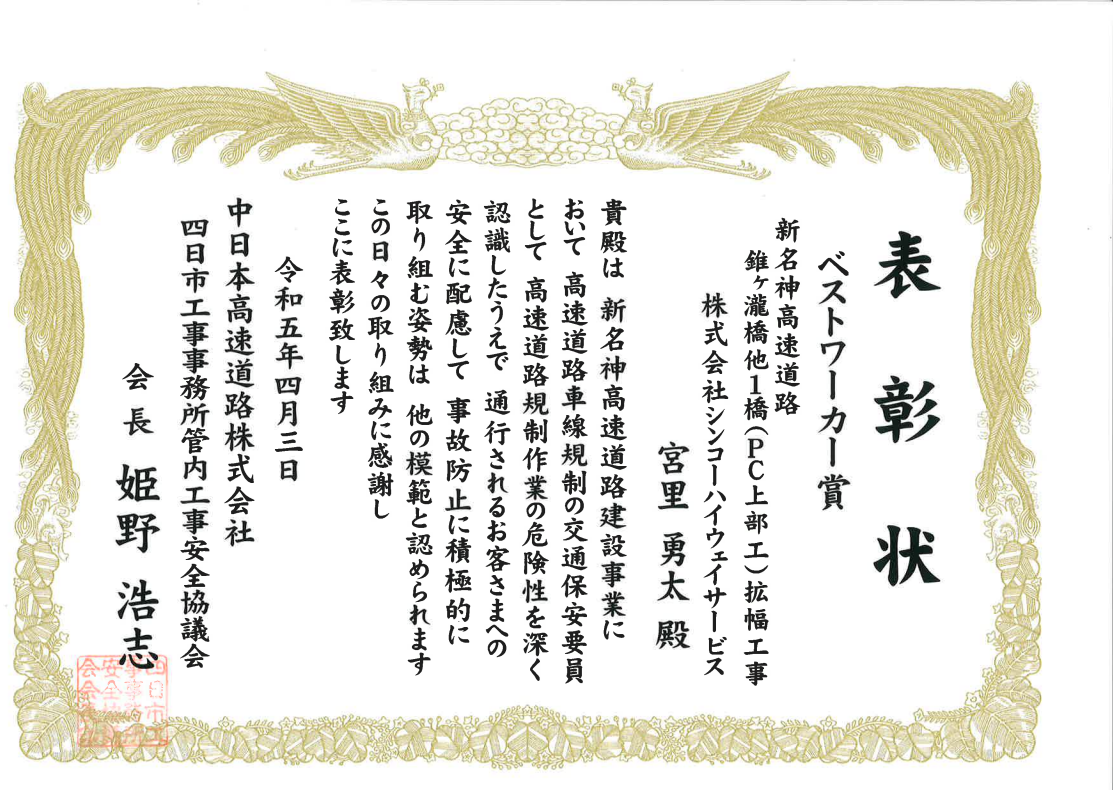 表彰状
ベストワーカー賞
新名神高速道路
錐ヶ瀧橋他1橋(PC上部工)拡幅工事
株式会社シンコーハイウェイサービス
宮里 勇太 殿
貴殿は 新名神高速道路建設事業に
おいて 高速道路車線規制の交通保安要員
として 高速道路規制作業の危険性を深く
認識したうえで 通行されるお客さまへの
安全に配慮して 事故防止に積極的に
取り組む姿勢は 他の模範と認められます
この日々の取り組みに感謝し
ここに表彰致します
令和五年四月三日
中日本高速道路株式会社
四日市工事事務所管内工事安全協議会
会長 姫野 浩志